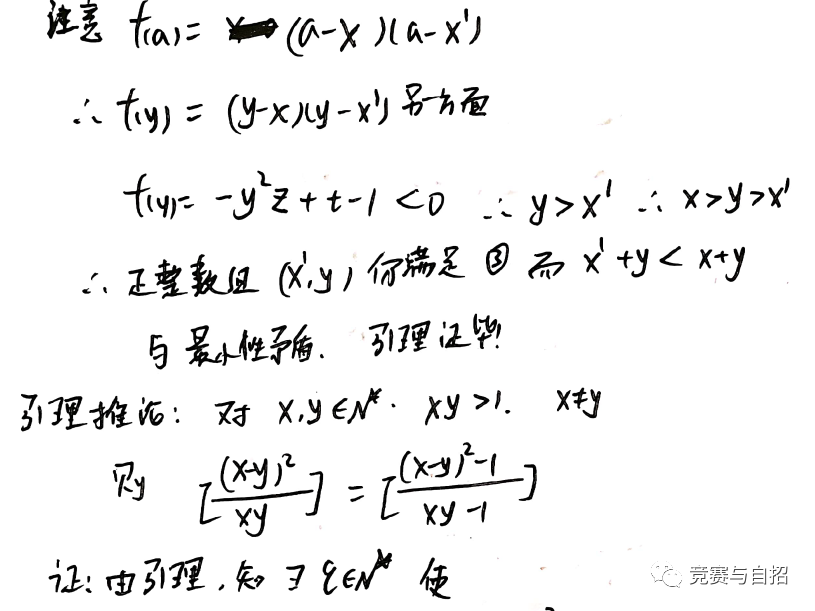 注意 f(a) = (a-x)(a-x')
∴ f(y) = (y-x)(y-x') 另一方面
f(y) = -y²z+t-1 <0 ∴ y>x' ∴ x>y>x'
∴ 正整数组 (x',y) 仍满足 ③ 而 x'+y < x+y
与最小性矛盾. 引理证毕!
引理推论: 对 x,y∈N*. xy>1. x≠y
则 [(x-y)²/xy] = [((x-y)²-1)/(xy-1)]
证: 由引理, 知 ∃ ∈N* 使
竞赛与自招